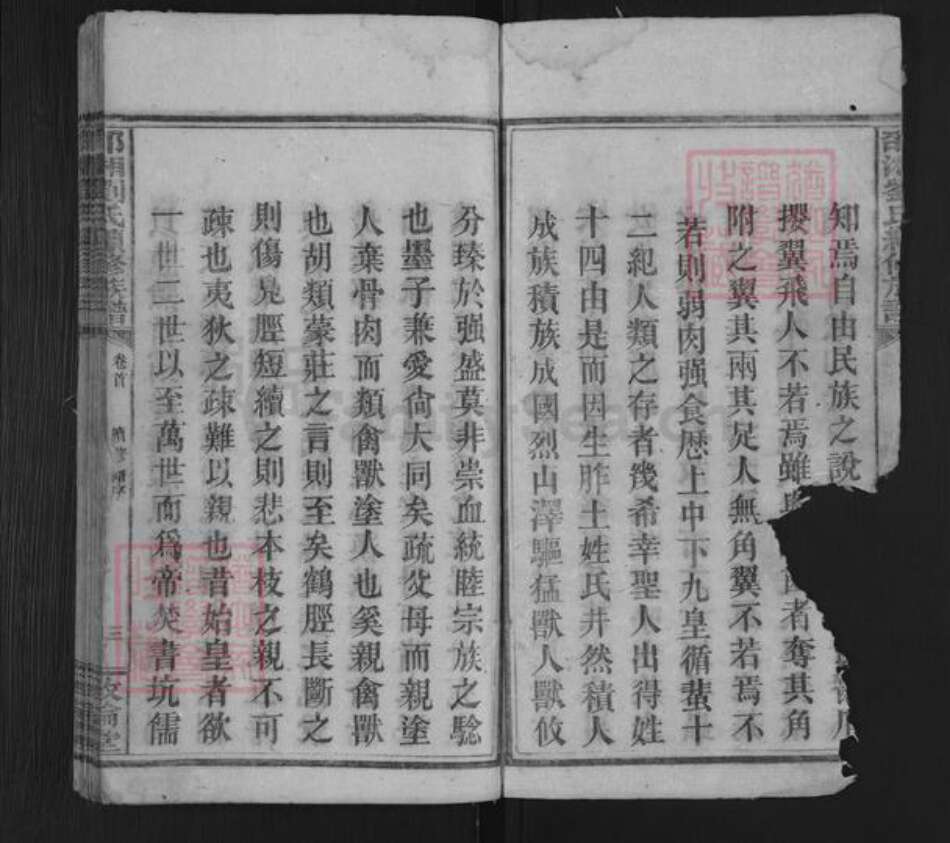 知焉自由民族之說
攖翼飛人不若焉雖 者奪其角
附之翼其兩其足人無角翼不若焉不
若則弱肉强食歷上中下九皇循蜚十
二紀人類之存者幾希幸聖人出得姓
十四由是而因生胙土姓氏井然積人
成族積族成國烈山澤驅猛獸人獸攸
分臻於强盛莫非崇血統睦宗族之騐
也墨子兼愛尙大同矣疏父母而親塗
人棄骨肉而類禽獸塗人也奚親禽獸
也胡類蒙莊之言則至矣鶴脛長斷之
則傷鳧脛短續之則悲本枝之親不可
疎也夷狄之疎難以親也昔始皇者欲
一世二世以至萬世而爲帝焚書坑儒
劉氏續修族譜
卷首
三
FamilySearch.com